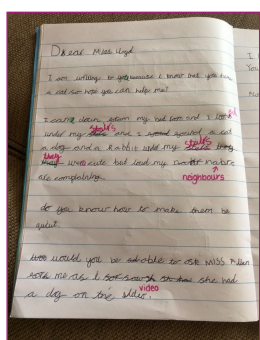 Dear Miss Lloyd
I am writing to you because I know that you have
a cat so hope you can help me?
I came down from my bed room and I looked
under my stairs and I found a cat
a dog and a Rabbit under my stairs
they were cute but loud my nature
are complaining. neighbours
do you know how to make them be
quiet.
would you be able to ask MISS
me as I she had
a dog on the video.
I
You